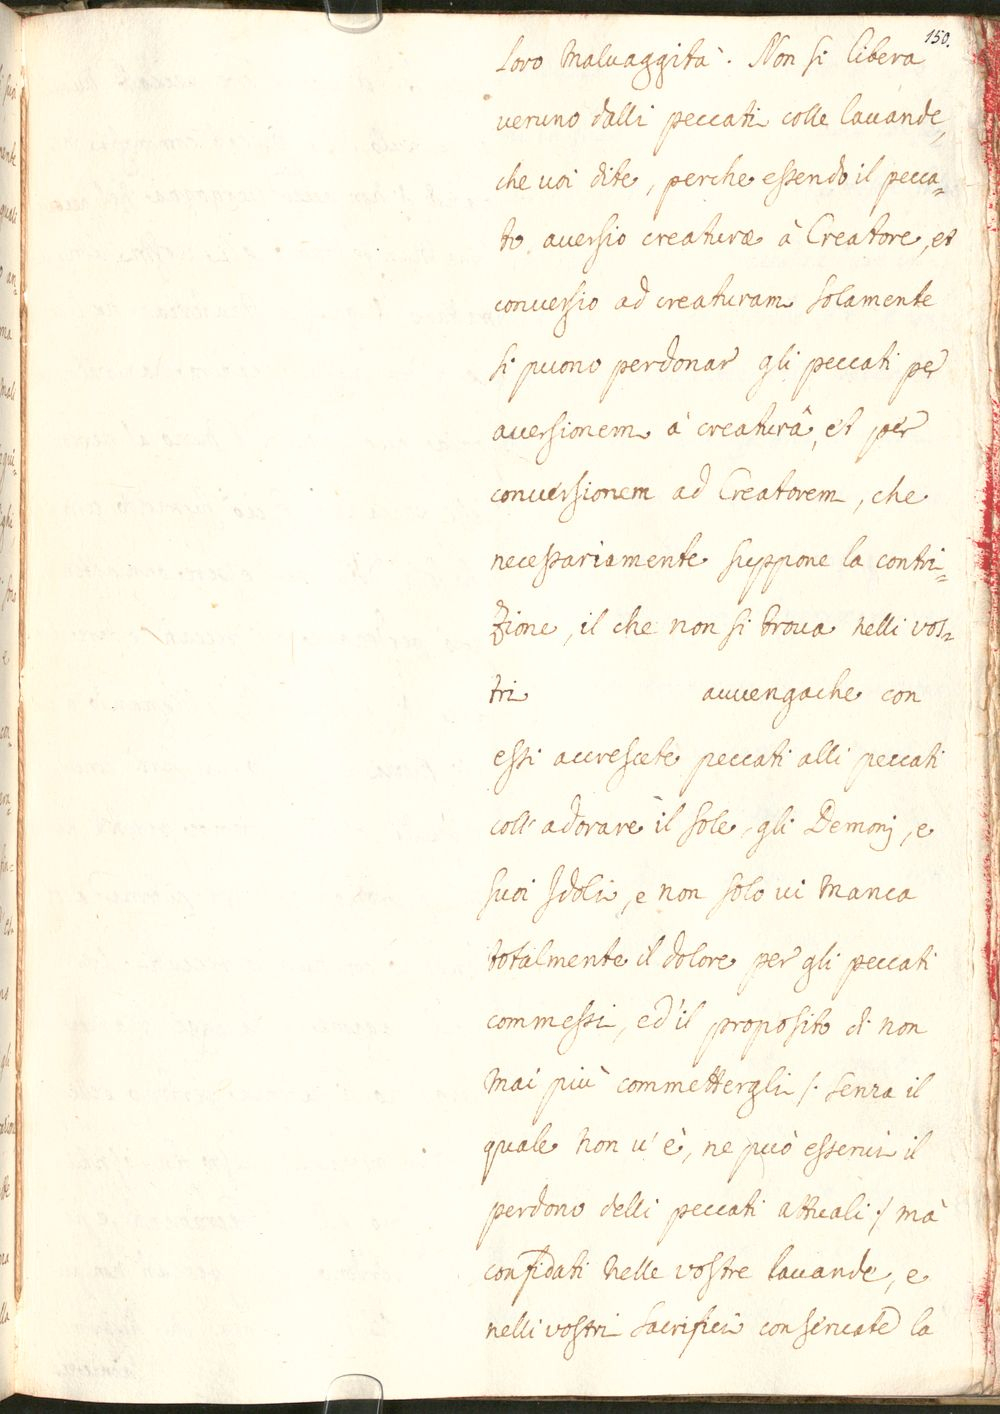 150.
loro malvaggità. Non si libera
veruno dalli peccati colle lavande,
che voi dite, perche essendo il pecca=
to aversio creaturæ à Creatore, et
conversio ad creaturam solamente
si puono perdonar gli peccati per
aversionem à creaturâ, et per
conversionem ad Creatorem, che
necessariamente suppone la contri=
zione, il che non si trova nelli vos=
tri avvengache con
essi accrescete peccati alli peccati
coll' adorare il sole, gli Demonj, e
suoi Idoli, e non solo vi manca
totalmente il dolore per gli peccati
commessi, ed'il proposito di non
mai più commettergli /: senza il
quale non v' è, ne può esservi il
perdono delli peccati attuali :/ mà
confidati nelle vostre lavande, e
nelli vostri sacrificii conservate la